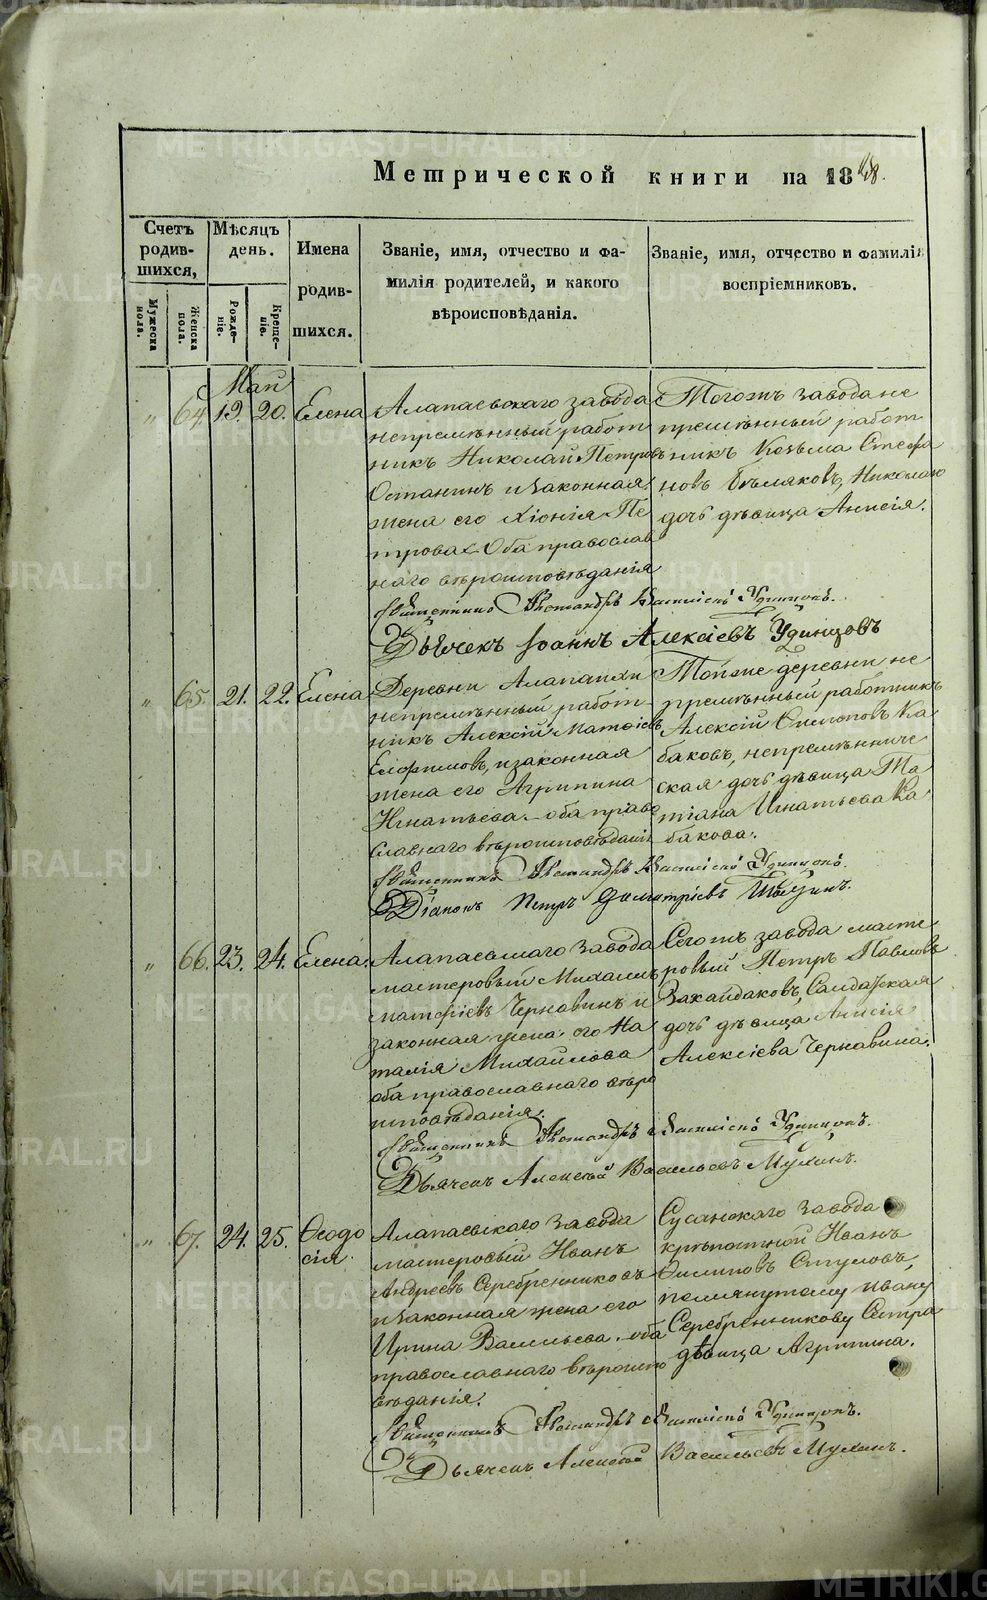 Метрической книги на 1848.
Счетъ родив-шихся,
Мѣсяцъ день.
Имена родив-шихся.
Званіе, имя, отчество и фа-
милія родителей, и какого
вѣроисповѣданія.
Званіе, имя, отчество и фамилія
воспріемниковъ.
Мужеска пола.
Женска пола.
Рожде-ніе.
Креще-ніе.
Май
„ 64. 19. 20. Елена
Алапаевскаго завода
непремѣнный работ
никъ Николай Петровъ
Останинъ и законная
жена его Хіонія Пе
трова. Оба православ
наго вѣроисповѣданія
Тогожъ завода не
премѣнный работ
никъ Козьма Стефа
новъ Бѣляковъ, Николаю
дочь дѣвица Анисія.
Священникъ Александръ Удинцовъ.
Дьячекъ Іоаннъ Алексіевъ Удинцовъ
„ 65. 21. 22. Елена
Деревни Алапаихи
непремѣнный работ
никъ Алексій Матѳіевъ
Елфимовъ, и законная
жена его Агрипина
Игнатьева. оба право
славнаго вѣроисповѣданія
Тойже деревни не
премѣнный работникъ
Алексій Симоновъ Ка
баковъ, непремѣнниче
ская дочь дѣвица Та
тіана Игнатьева Ка
бакова.
Священникъ Александръ Удинцовъ.
Діаконъ Петръ Димитріевъ
„ 66. 23. 24. Елена.
Алапаевскаго завода
мастеровый Михаилъ
Матѳіевъ Чернавинъ и
законная жена его На
талія Михайлова
оба православнаго вѣро
исповѣданія.
Сегожъ завода масте
ровый Петръ Павловъ
Закайдаковъ, Солдатская
дочь дѣвица Анисія
Алексіева Чернавина.
Священникъ Александръ Удинцовъ.
Дьячекъ Алексѣй Васильевъ Мухинъ.
„ 67. 24. 25. Ѳеодо
сія.
Алапаевскаго завода
мастеровый Иванъ
Андреевъ Серебренниковъ
и законная жена его
Ирина Васильева. оба
православнаго вѣроиспо
вѣданія.
Сусанскаго завода
крѣпостной Иванъ
Филиповъ Стуловъ,
помянутому Ивану
Серебренникову Сестра
дѣвица Агрипина.
Священникъ Александръ Удинцовъ.
Дьячекъ Алексѣй Васильевъ Мухинъ.
METRIKI.GASO-URAL.RU